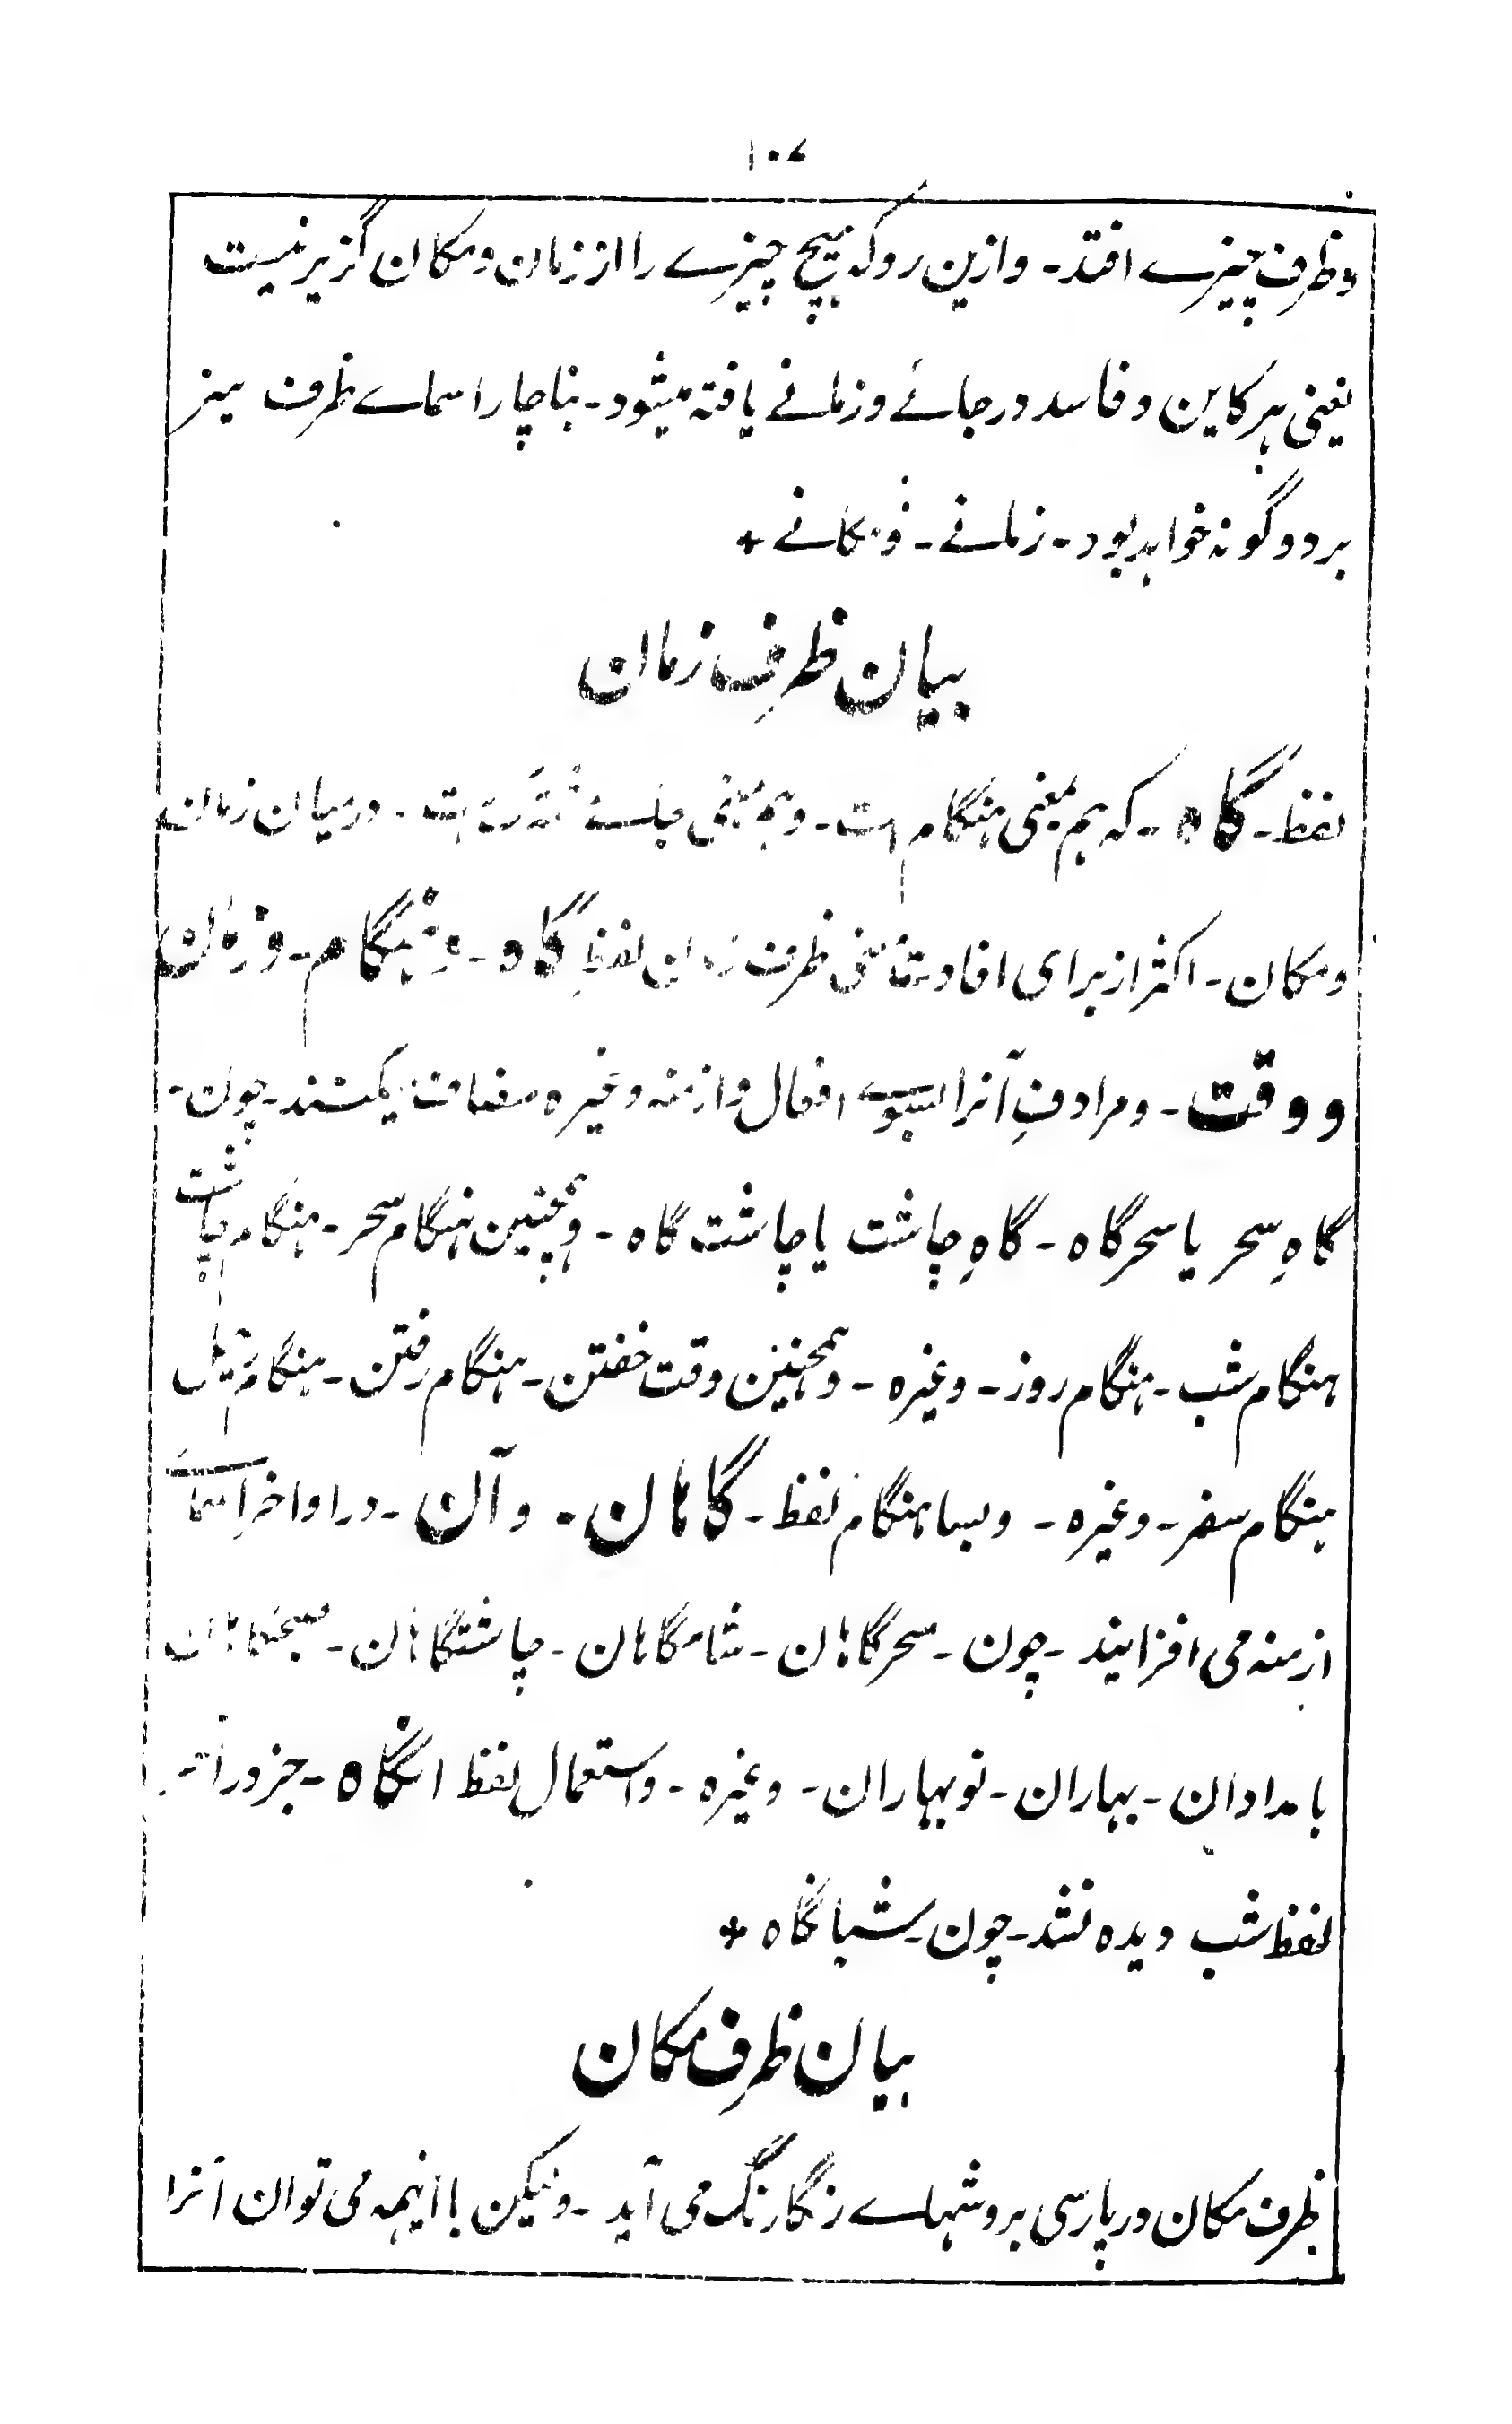 ۱۰۷
و ظرف چیزے افتد۔ و ازین رو که هیچ چیزے را از زمان و مکان گزیر نیست
یعنی هر کاین و فاسد در جائے و زمانے یافته میشود۔ بناچار اسماے ظرف نیز
بر دو گونه خواهد بود۔ زمانے۔ و مکانے +
بیان ظرفِ زمان
لفظ۔ گاه۔ که هم بمعنی هنگام ست۔ و هم بمعنی جاے۔ درمیان زمان
و مکان۔ اکثر از برای افادت معنی ظرف زمان لفظِ گاه۔ و هنگام۔ و زمان
و وقت۔ و مرادفِ آنرا بسوے افعال و ازمنه و غیره مضاف میکنند۔ چون۔
گاهِ سحر یا سحرگاه۔ گاهِ چاشت یا چاشت گاه۔ و همچنین هنگام سحر۔ هنگام چاشت
هنگام شب۔ هنگام روز۔ و غیره۔ و همچنین وقت خفتن۔ هنگام رفتن۔ هنگام
هنگام سفر۔ و غیره۔ و بسا هنگام لفظ۔ گاهان۔ و آن۔ در اواخرِ اسماے
ازمنه می افزایند۔ چون۔ سحرگاهان۔ شامگاهان۔ چاشتگاهان۔ صبحگاهان
بامدادان۔ بهاران۔ نوبهاران۔ و غیره۔ و استعمال لفظ انگاه۔ جز در آخر
لفظ شب دیده نشد۔ چون۔ شبانگاه +
بیان ظرف مکان
ظرف مکان در پارسی بروشهاے رنگارنگ می آید۔ ولیکن با اینهمه می توان آنرا